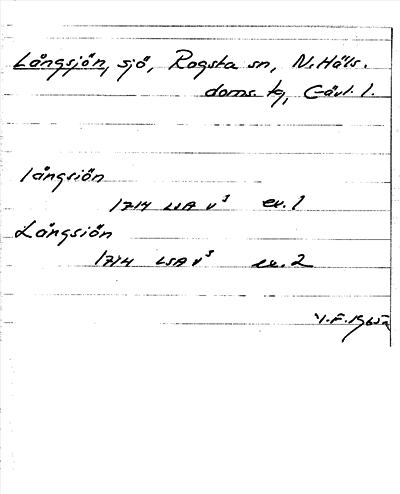 Långsjön, sjö, Rogsta sn, N. Häls.
doms. tg, Gävl. l.
långsiön
1714 LSA v³ ex. 1
Långsiön
1714 LSA v³ ex. 2